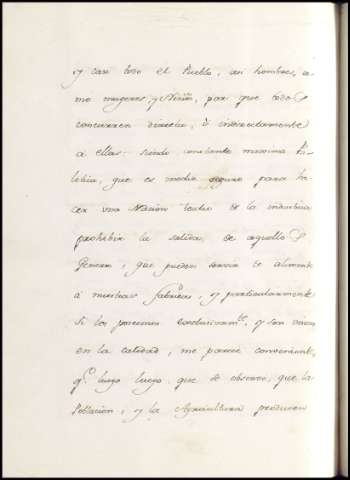 y casi todo el Pueblo, asi hombres, co-
mo mugeres, y Niños, por que todos
concurren directa, ò indirectamente
à ellas: siendo constante maxima Pu-
blica, que es medio seguro para ha-
cer una Nacion teatro de la industria
prohibir la salida, de aquellos
Generos, que pueden servir de alimento
à nuestras fabricas, y particularmente
si los poseemos exclusivam.te, y son unicos
en la calidad, me parece conveniente,
q.e luego luego, que se observe, que la
Poblacion, y la Agricultura producen